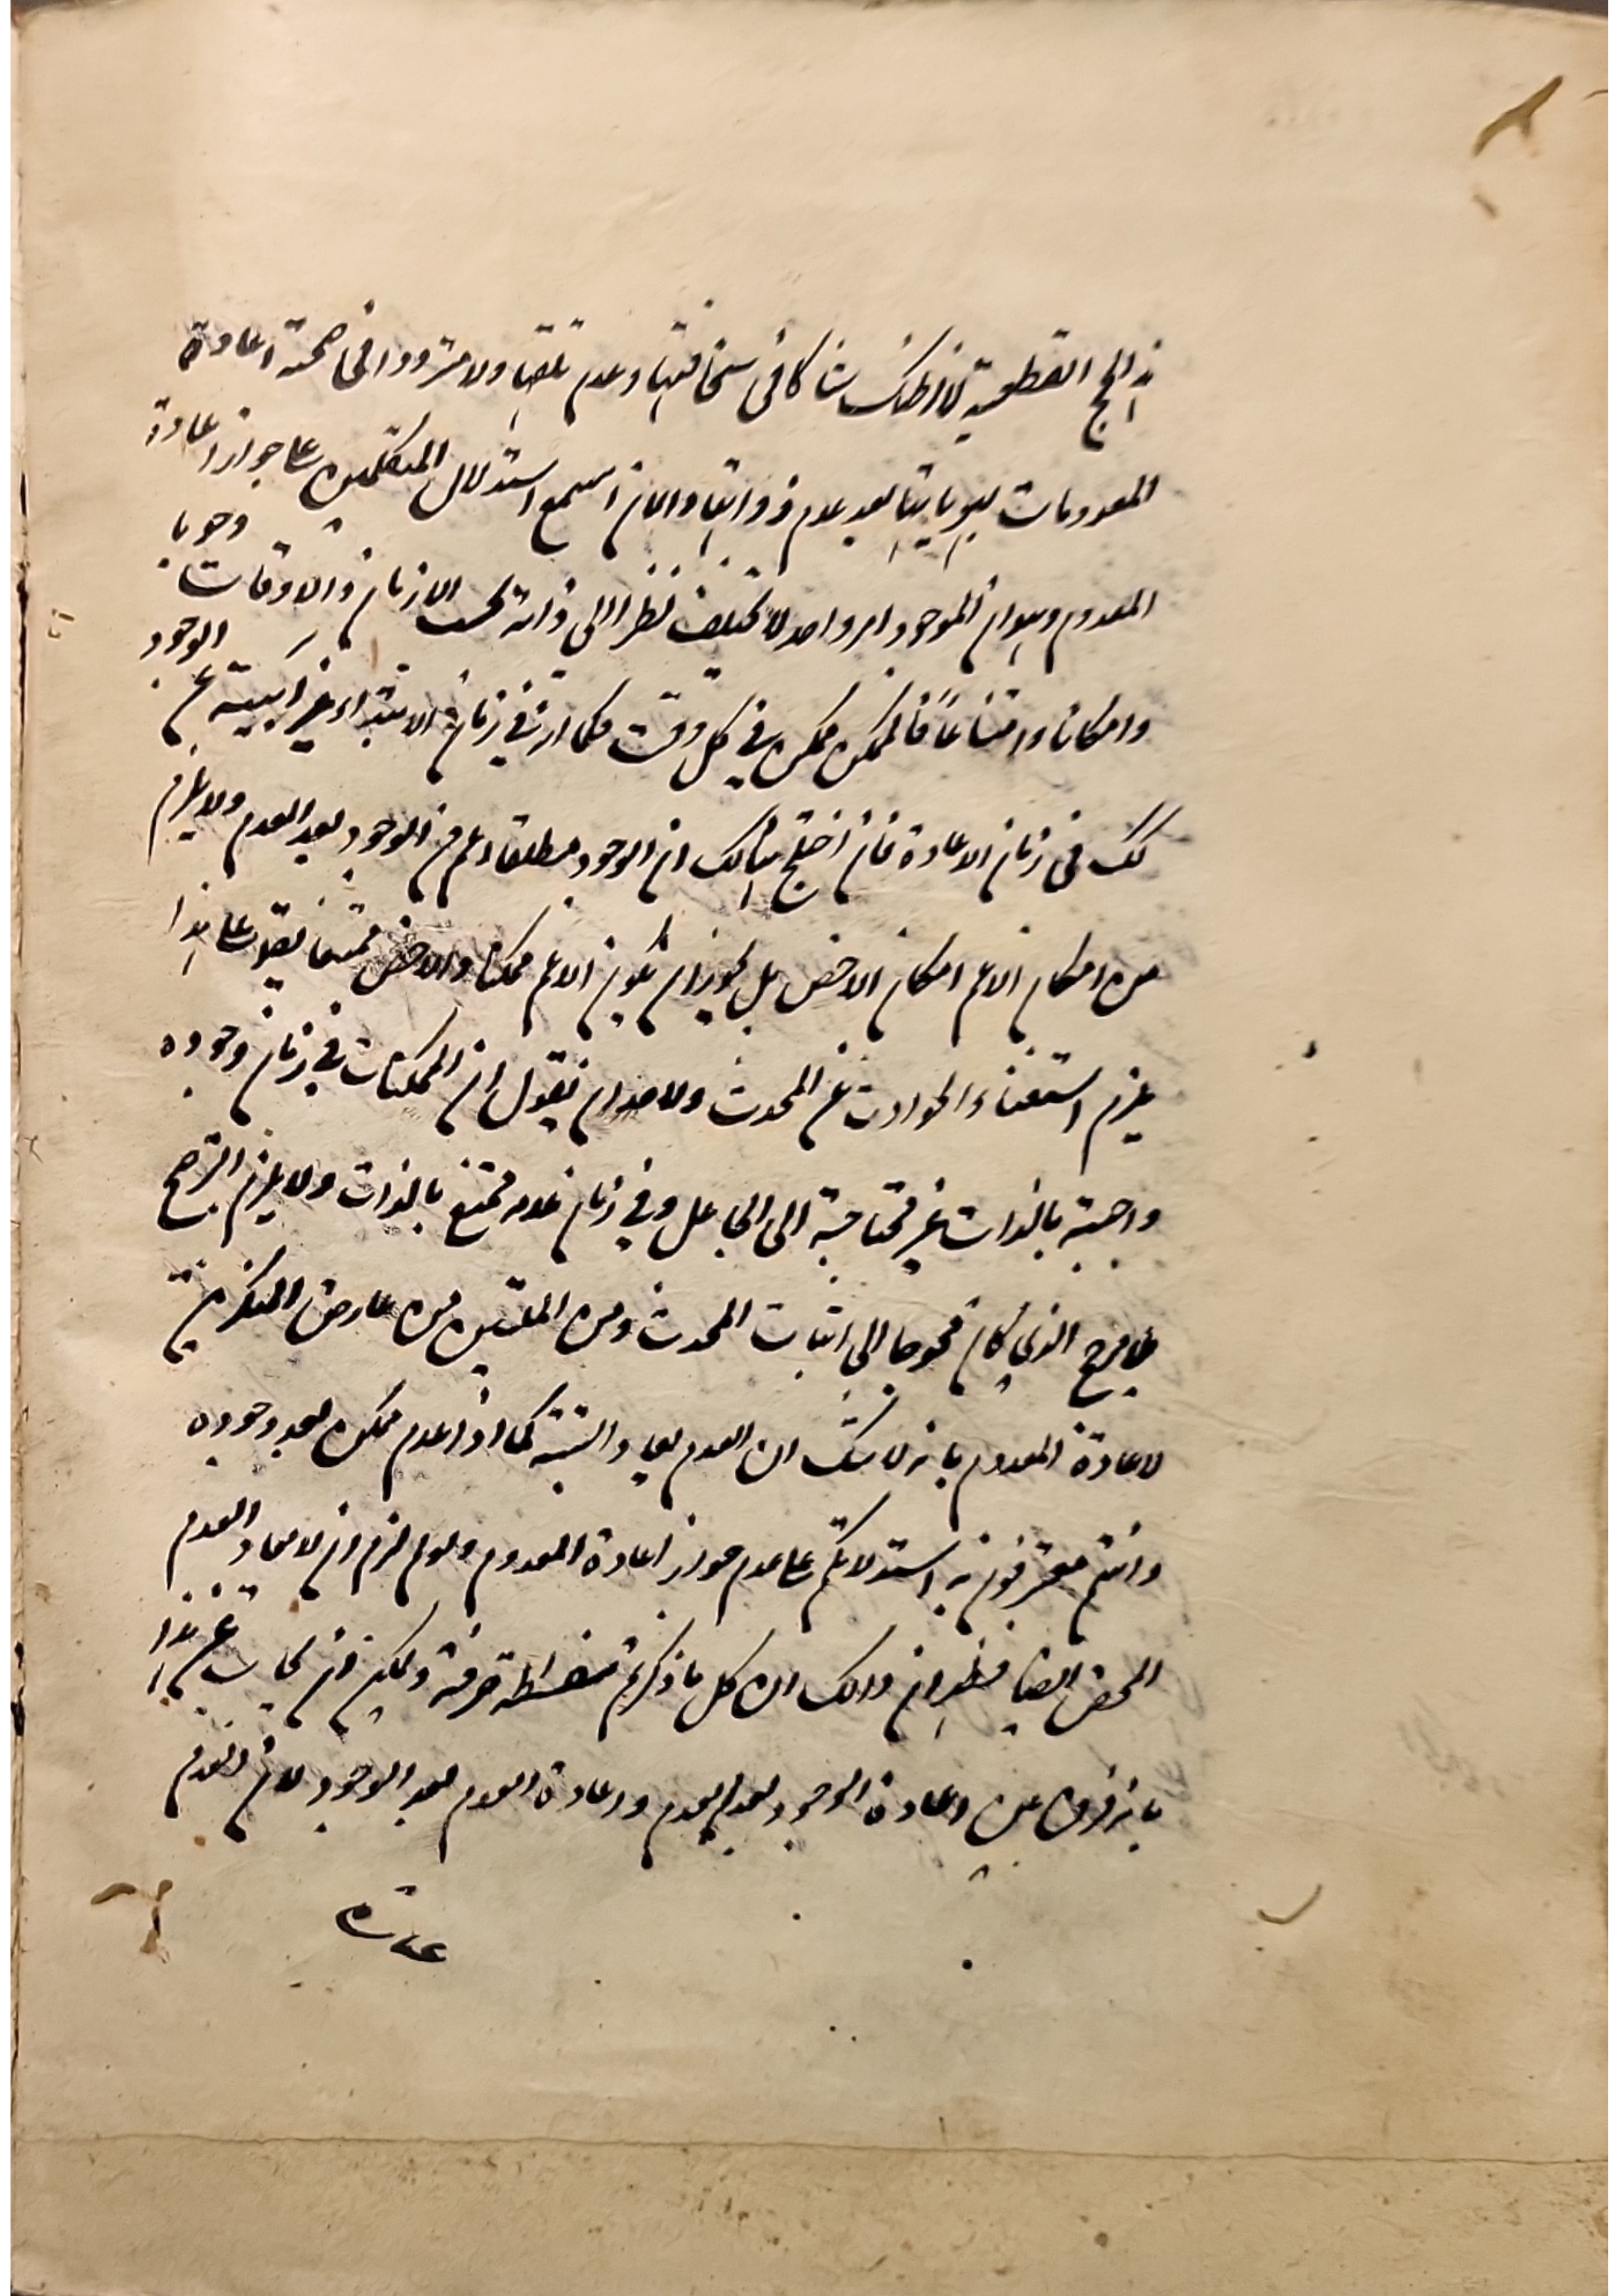 هذه الحجج القطعية لا اظنك شاكا في سخافتها وعدم تلقيها ولا مترددا في صحة اعادة
المعدومات بهوياتها بعد عدم ذواتها والآن اسمع استدلال المتكلمين على جواز اعادة
المعدوم وهو ان الموجود امر واحد لا يختلف نظرا الى ذاته بحسب الازمان والاوقات وجوبا
وامكانا وامتناعا فالممكن ممكن في كل وقت فكما انه في زمان الابتداء غير آبية عن الوجود
كك في زمان الاعادة فان اختلج ببالك ان الوجود مطلقا اعم من الوجود بعد العدم ولا يلزم
من امكان الاعم امكان الاخص بل يجوز ان يكون الاعم ممكنا والاخص ممتنعا يقال على هذا
يلزم استغناء الحوادث عن المحدث ولاحد ان يقول ان الممكنات في زمان وجوده
واجبة بالذات غير محتاجة الى الجاعل وفي زمان عدمه ممتنع بالذات ولا يلزم الترجيح
بلا مرجح الذي كان محوجا الى اثبات المحدث ومن المليين من عارض المنكرين
لاعادة المعدوم بانه لا شك ان العدم يعاد البتة كما اذا عدم ممكن بعد وجوده
وانتم معترفون به استدلالكم على عدم جواز اعادة المعدوم ولو تم لزم ان لا يعاد العدم
المحض ايضا فظهر ان ذالك ان كل ما ذكرتم سفسطة صرفة ويمكن ان يجاب عن هذا
بانه فرق بين اعادة الوجود بعد العدم واعادة العدم بعد الوجود لان العدم